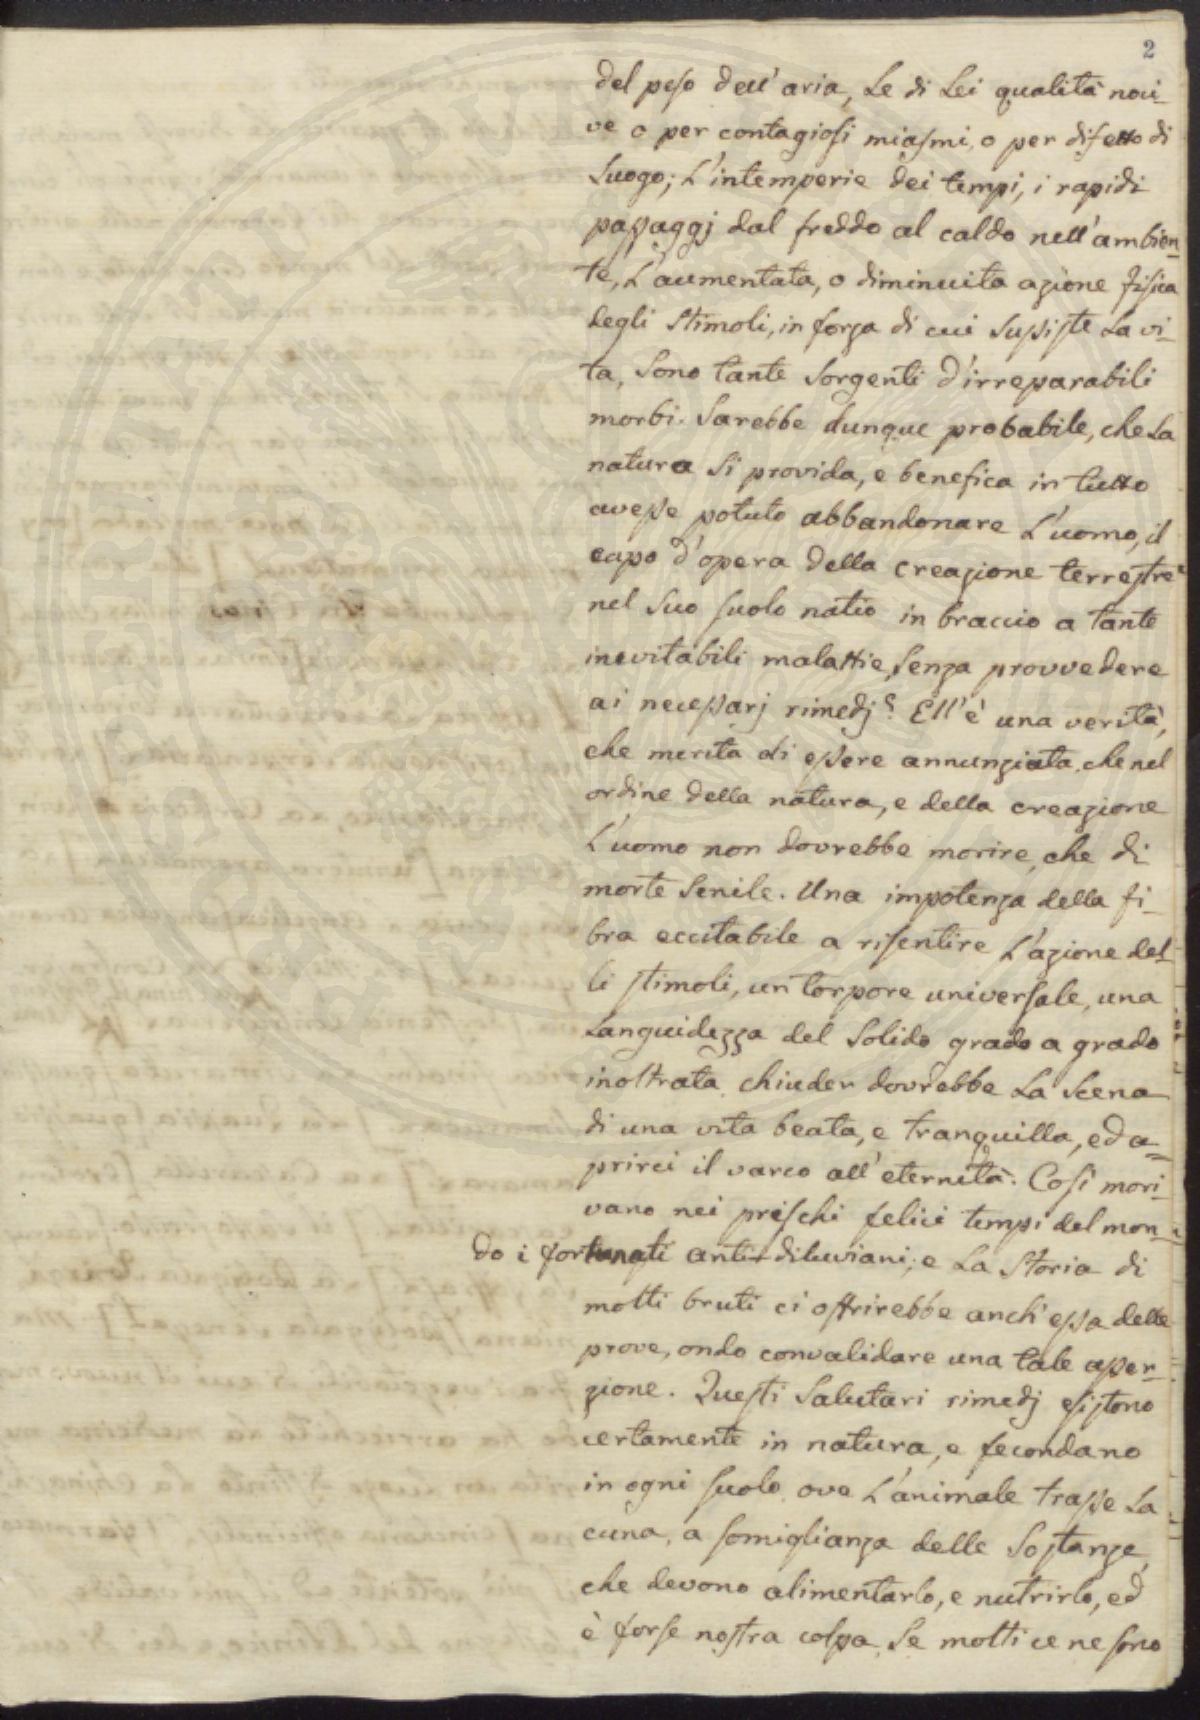 2
del peso dell'aria, Le di Lei qualità noci-
ve o per contagiosi miasmi, o per difetto di
Luogo; L'intemperie dei tempi, i rapidi
passaggj dal freddo al caldo nell'ambien-
te, L'aumentata, o diminuita azione fisica
degli stimoli, in forza di cui sussiste La vi-
ta, sono tante sorgenti d'irreparabili
morbi. Sarebbe dunque probabile, che La
natura sì provida, e benefica in tutto
avesse potuto abbandonare L'uomo, il
capo d'opera della creazione terrestre
nel suo suolo natio in braccio a tante
inevitabili malattie, senza provvedere
ai necessarj rimedj? Ell'è una verità,
che merita di essere annunziata, che nel
ordine della natura, e della creazione
L'uomo non dovrebbe morire, che di
morte senile. Una impotenza della fi-
bra eccitabile a risentire L'azione del-
li stimoli, un torpore universale, una
Languidezza del solido grado a grado
inoltrata chiuder dovrebbe La scena
di una vita beata, e tranquilla, ed a=
prirci il varco all'eternità. Così mori-
vano nei prischi felici tempi del mon-
do i fortunati anti-diluviani; e La storia di
molti bruti ci offrirebbe anch'essa delle
prove, onde convalidare una tale asser-
zione. Questi salutari rimedj esistono
certamente in natura, e fecondano
in ogni suolo, ove L'animale trasse La
cuna, a somiglianza delle sostanze,
che devono alimentarlo, e nutrirlo, ed
è forse nostra colpa, se molti ce ne sono